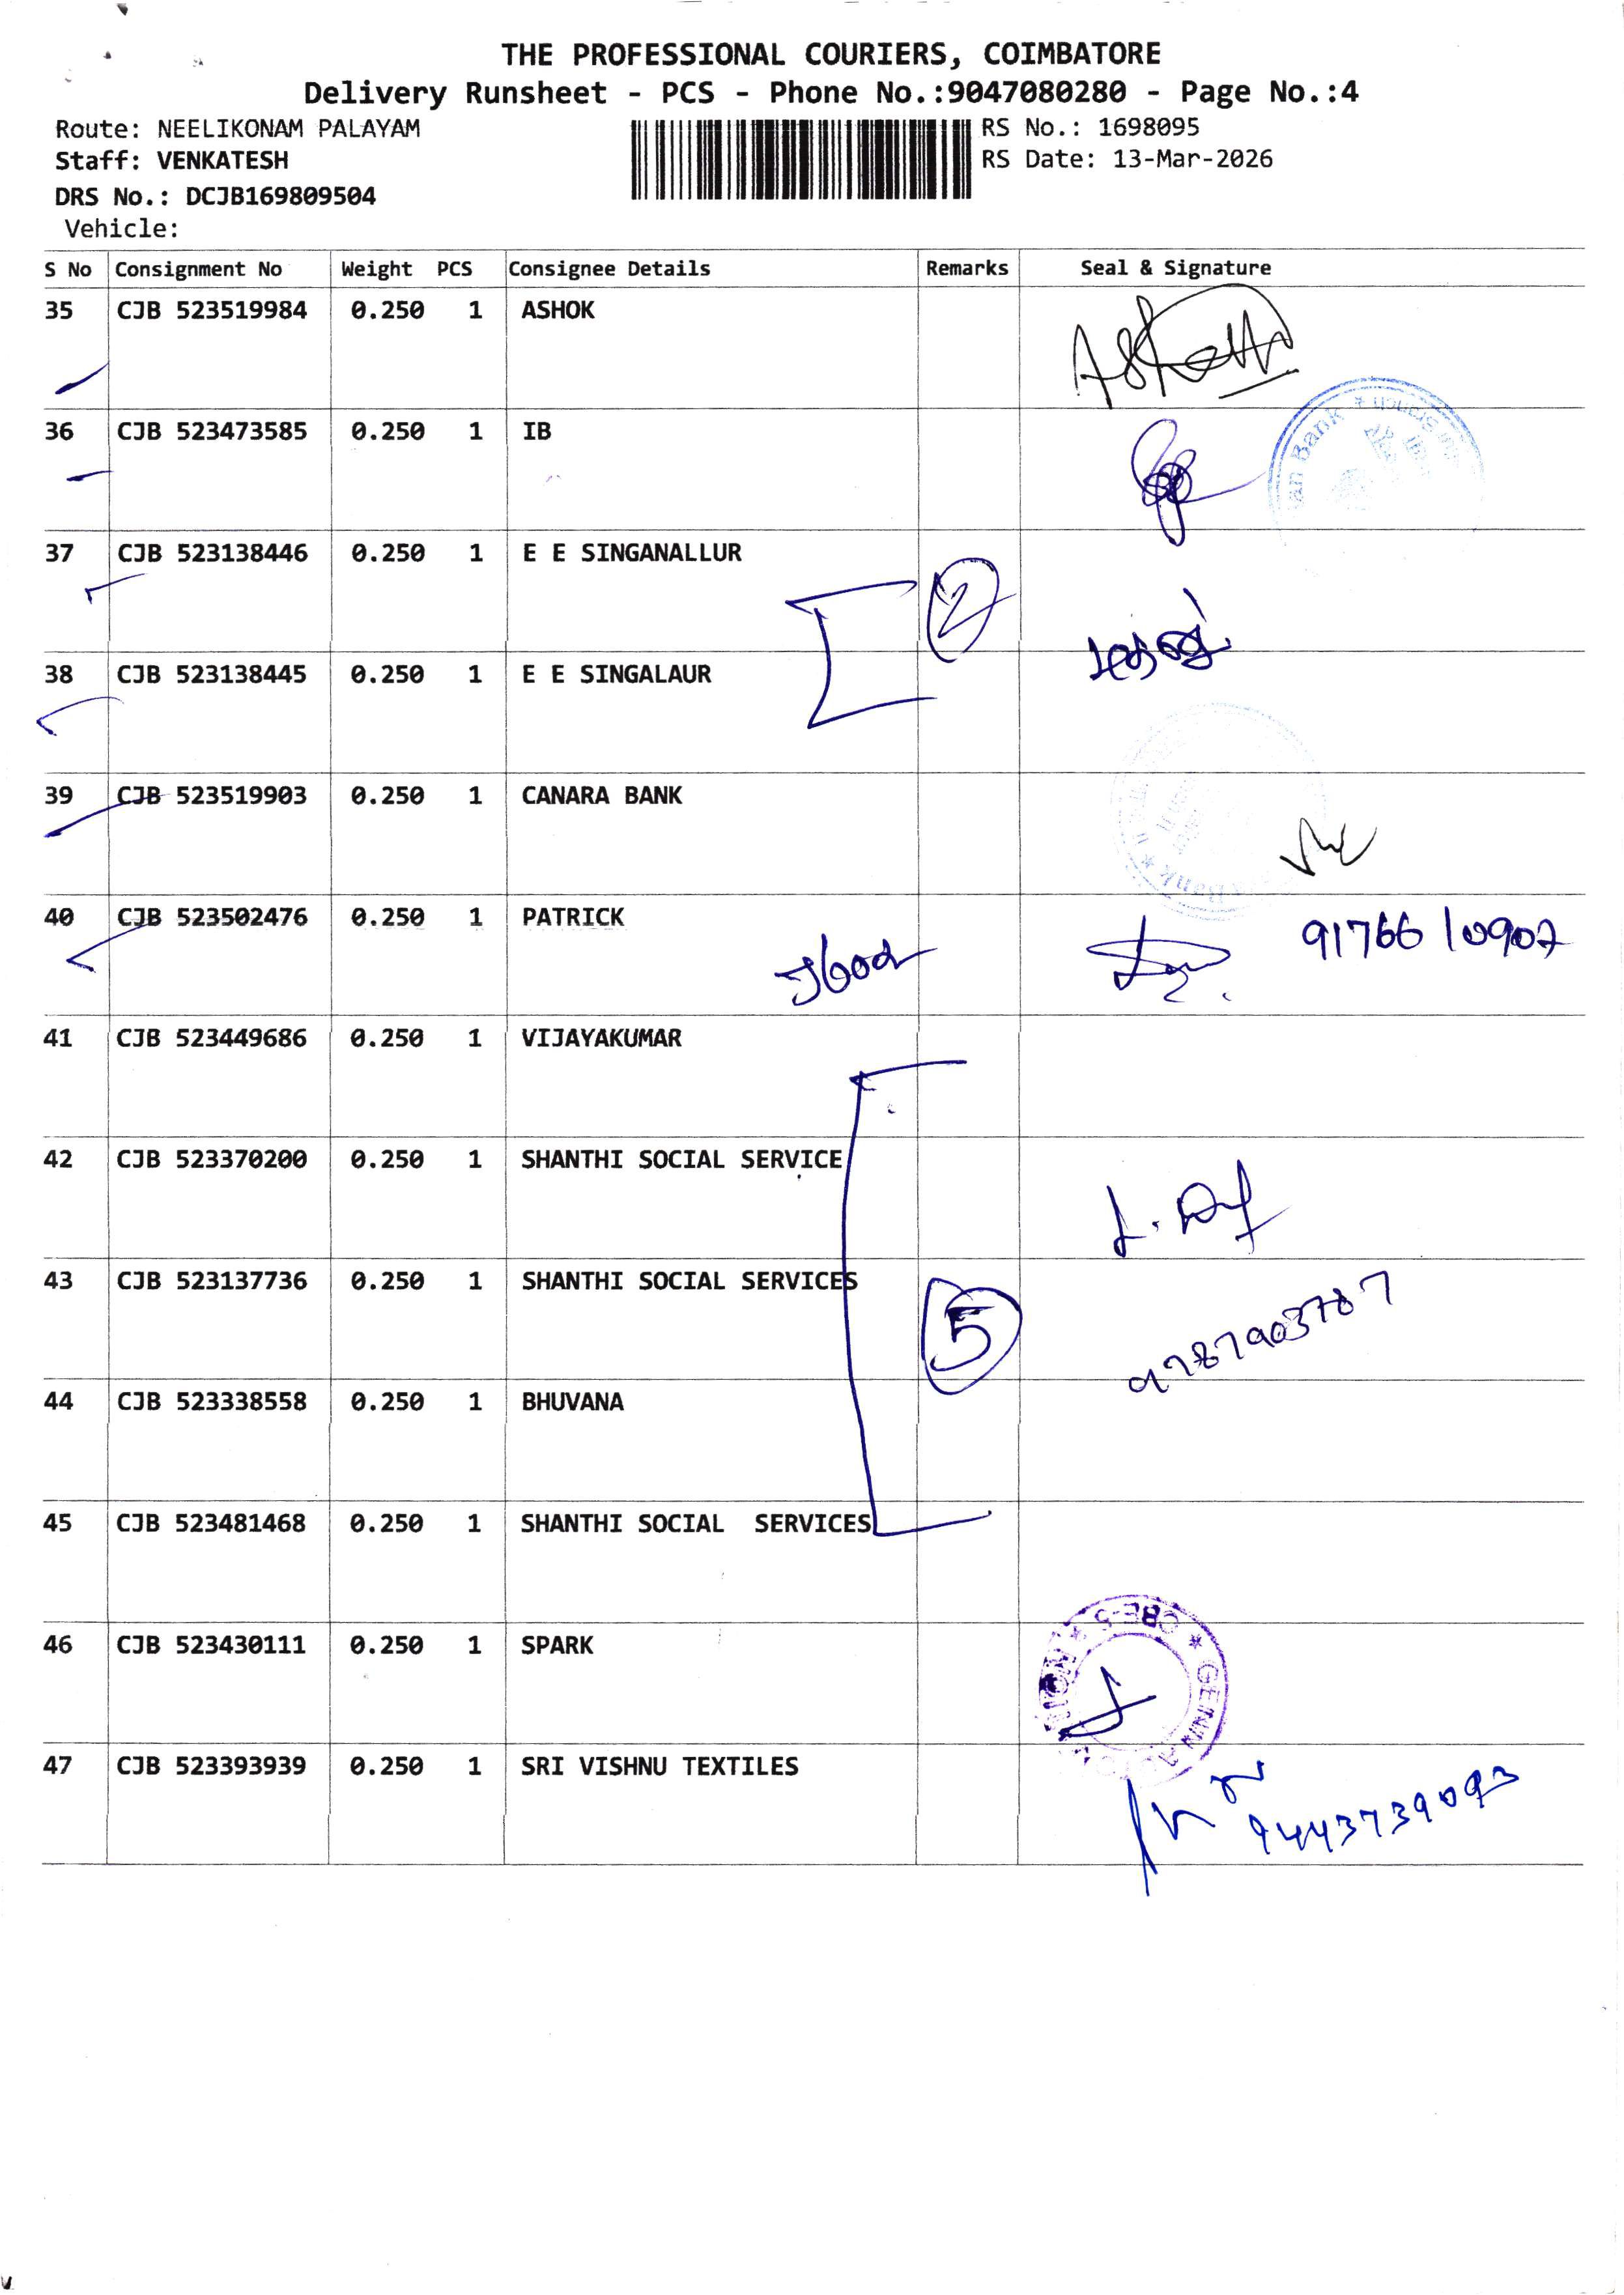 THE PROFESSIONAL COURIERS, COIMBATORE
Delivery Runsheet - PCS - Phone No.:9047080280 - Page No.:4
Route: NEELIKONAM PALAYAM
RS No.: 1698095
Staff: VENKATESH
RS Date: 13-Mar-2026
DRS No.: DCJB169809504
Vehicle:
S No Consignment No Weight PCS Consignee Details Remarks Seal & Signature
35 CJB 523519984 0.250 1 ASHOK
36 CJB 523473585 0.250 1 IB
Bank
37 CJB 523138446 0.250 1 E E SINGANALLUR
2
38 CJB 523138445 0.250 1 E E SINGALAUR
39 CJB 523519903 0.250 1 CANARA BANK
Bank
40 CJB 523502476 0.250 1 PATRICK
91766 10907
41 CJB 523449686 0.250 1 VIJAYAKUMAR
42 CJB 523370200 0.250 1 SHANTHI SOCIAL SERVICE
43 CJB 523137736 0.250 1 SHANTHI SOCIAL SERVICES
5
9787903787
44 CJB 523338558 0.250 1 BHUVANA
45 CJB 523481468 0.250 1 SHANTHI SOCIAL SERVICES
46 CJB 523430111 0.250 1 SPARK
CBE-5
47 CJB 523393939 0.250 1 SRI VISHNU TEXTILES
9443739093